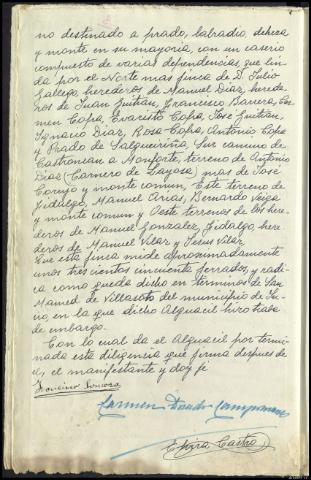 no destinado a prado, labradio, dehesa
y monte en su mayoria, con un caserio
compuesto de varias dependencias que lin-
da por el Norte mas finca de D. Julio
Gallego, herederos de Manuel Diaz, herede-
ros de Juan Guitian, Francisco Barrera, Car-
men Copa, Evaristo Copa, José Guitian,
Ignacio Diaz, Rosa Copa, Antonio Copa
y Prado de Salgueiriña, Sur camino de
a Monforte, terreno de Antonio
Diaz (Carnero de Layosa) mas de José
Corujo y monte comun, Este terreno de
Fidalgo, Manuel Arias, Bernardo Veiga
y monte comun y Oeste terrenos de los here-
deros de Manuel Gonzalez, Fidalgo, here-
deros de Manuel Vilar y Jesus Vilar.
Que esta finca mide aproximadamente
unos trescientos cincuenta ferrados, y radi-
ca como queda dicho en terminos de San
Mamed de Villasouto del municipio de In-
cio, en la que dicho Alguacil hizo traba
de embargo.
Con lo cual da el Alguacil por termi-
nada esta diligencia que firma despues de
el manifestante y doy fe
Carmen
Elvira Castro